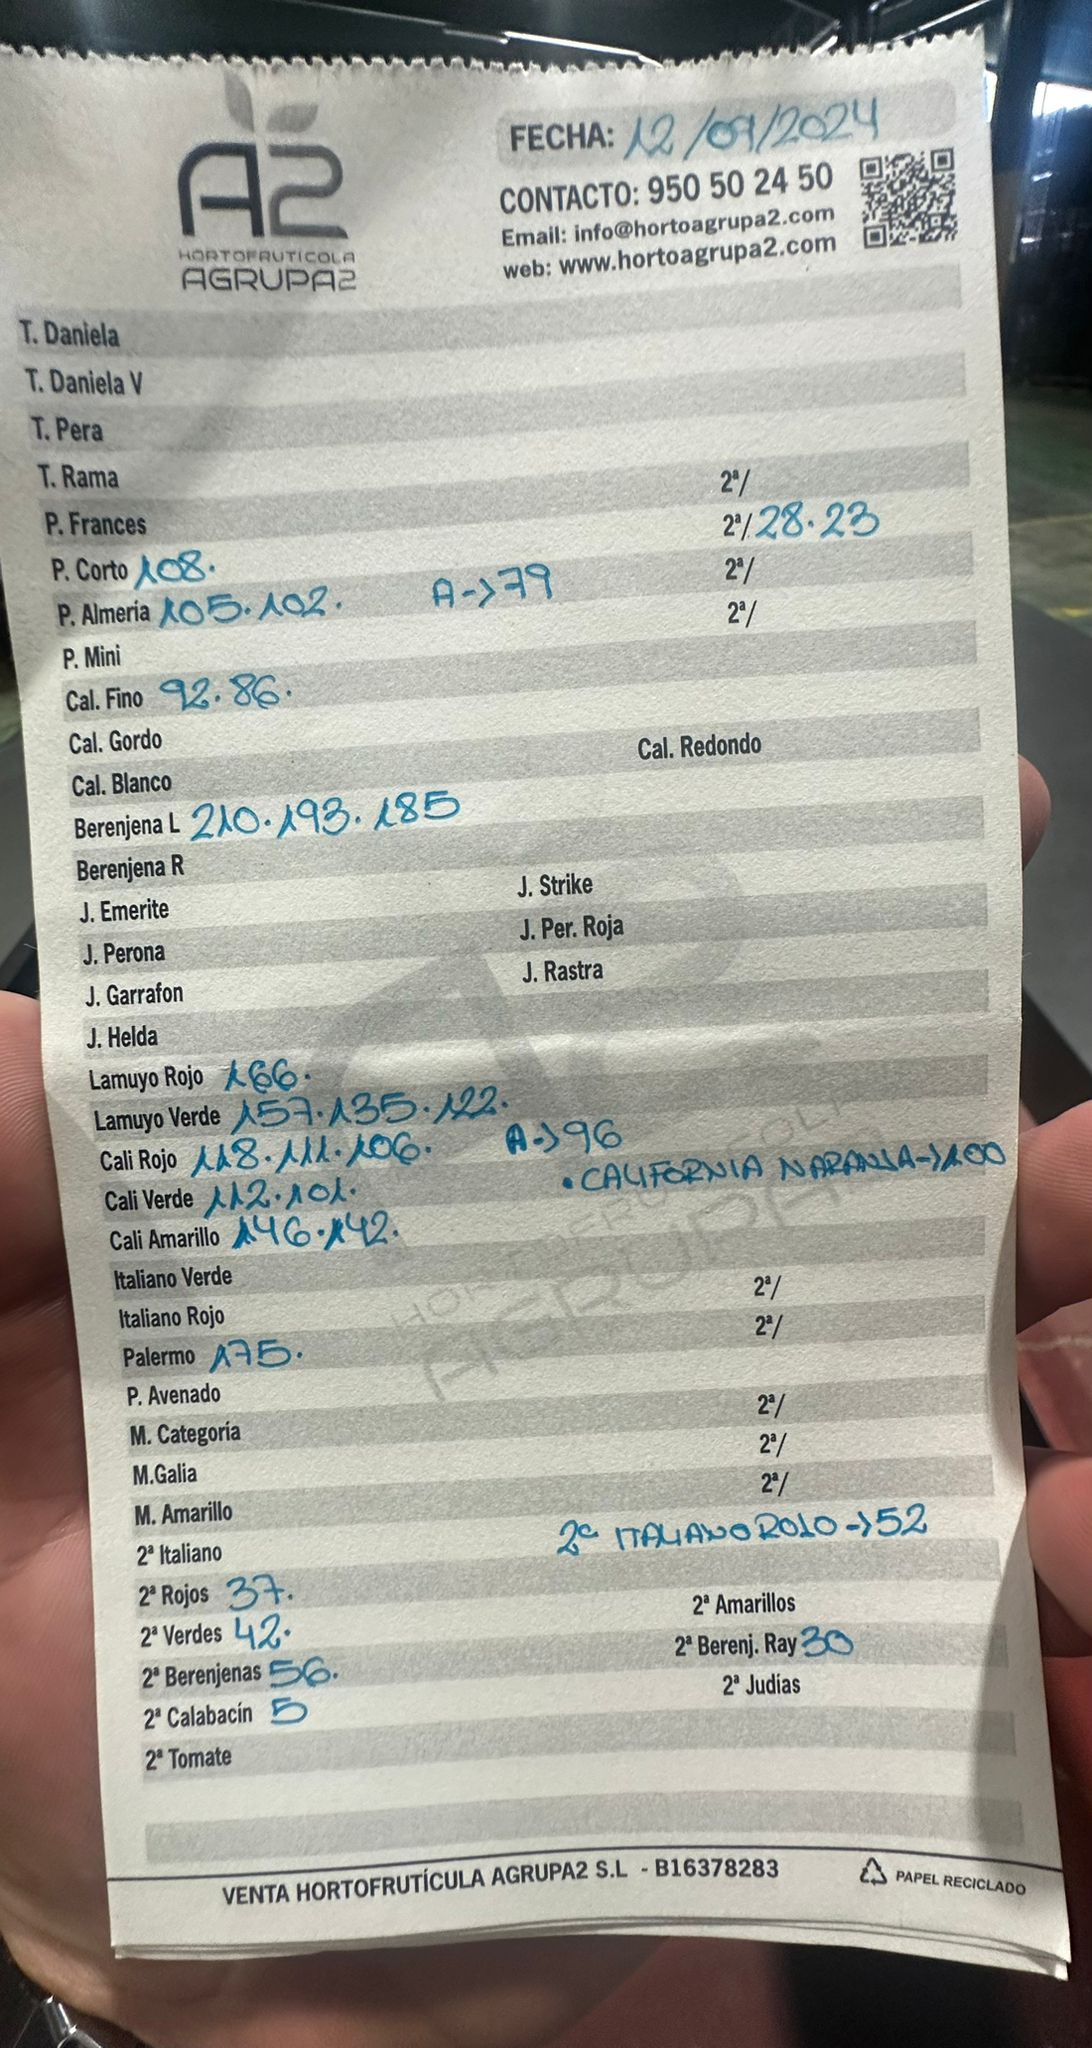 A2
HORTOFRUTICOLA
AGRUPA2
FECHA: 12/09/2024
CONTACTO: 950 50 24 50
Email: info@hortoagrupa2.com
web: www.hortoagrupa2.com
T. Daniela
T. Daniela V
T. Pera
T. Rama 2ª/
P. Frances 2ª/ 28.23
P. Corto 108. 2ª/
P. Almería 105.102. A->79 2ª/
P. Mini
Cal. Fino 92.86.
Cal. Gordo Cal. Redondo
Cal. Blanco
Berenjena L 210.193.185
Berenjena R
J. Emerite J. Strike
J. Perona J. Per. Roja
J. Garrafon J. Rastra
J. Helda
Lamuyo Rojo 166.
Lamuyo Verde 157.135.122.
Cali Rojo 118.111.106. A->96
Cali Verde 112.101. •CALIFORNIA NARANJA->100
Cali Amarillo 146.142.
Italiano Verde 2ª/
Italiano Rojo 2ª/
Palermo 175.
P. Avenado 2ª/
M. Categoría 2ª/
M.Galia 2ª/
M. Amarillo
2ª Italiano 2ª ITALIANO ROJO->52
2ª Rojos 37. 2ª Amarillos
2ª Verdes 42. 2ª Berenj. Ray 30
2ª Berenjenas 56. 2ª Judías
2ª Calabacín 5
2ª Tomate
VENTA HORTOFRUTÍCULA AGRUPA2 S.L - B16378283
PAPEL RECICLADO